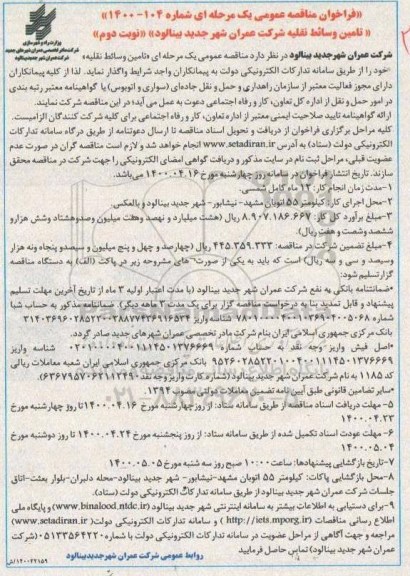 «فراخوان مناقصه عمومی یک مرحله ای شماره ۱۰۴-۱۴۰۰»
« تامین وسائط نقلیه شرکت عمران شهر جدید بینالود» «نوبت دوم»
وزارت راه و شهرسازی
شرکت عمران شهر جدید بینالود
شرکت عمران شهر جدید بینالود در نظر دارد مناقصه عمومی یک مرحله ای «تامین وسائط نقلیه»
خود را از طریق سامانه تدارکات الکترونیکی دولت به پیمانکاران واجد شرایط واگذار نماید. لذا از کلیه پیمانکاران
دارای مجوز فعالیت معتبر از سازمان راهداری و حمل و نقل جاده‌ای (سواری و اتوبوس) یا گواهینامه معتبر رتبه بندی
در امور حمل و نقل از اداره کل تعاون، کار و رفاه اجتماعی دعوت به عمل می آید؛ در این مناقصه شرکت نمایند.
ارائه گواهینامه تایید صلاحیت ایمنی معتبر از اداره تعاون، کار و رفاه اجتماعی برای کلیه شرکت کنندگان الزامیست.
کلیه مراحل برگزاری فراخوان از دریافت و تحویل اسناد مناقصه تا ارسال دعوتنامه از طریق درگاه سامانه تدارکات
الکترونیکی دولت (ستاد) به آدرس www.setadiran.ir انجام خواهد شد و لازم است مناقصه گران در صورت عدم
عضویت قبلی، مراحل ثبت نام در سایت مذکور و دریافت گواهی امضای الکترونیکی را جهت شرکت در مناقصه محقق
سازند. تاریخ انتشار فراخوان در سامانه روز چهارشنبه مورخ ۱۴۰۰.۰۴.۱۶ می‌باشد.
۱-مدت زمان انجام کار: ۱۲ ماه کامل شمسی.
۲-محل اجرای کار: کیلومتر ۵۵ اتوبان مشهد- نیشابور- شهر جدید بینالود و بالعکس.
۳-مبلغ برآورد کل کار: ۸.۹۰۷.۱۸۶.۶۶۷ ریال (هشت میلیارد و نهصد وهفت میلیون وصدوهشتاد وشش هزارو
ششصد وشصت و هفت ریال).
۴-مبلغ تضمین شرکت در مناقصه: ۴۴۵.۳۵۹.۳۳۳ ریال (چهارصد و چهل و پنج میلیون و سیصدو پنجاه ونه هزار
وسیصد و سی و سه ریال) است که باید به یکی از صورت های مشروحه زیر در پاکت (الف) به دستگاه مناقصه
گزار تسلیم شود:
*ضمانتنامه بانکی به نفع شرکت عمران شهر جدید بینالود (با مدت اعتبار اولیه ۳ ماه از تاریخ آخرین مهلت تسلیم
پیشنهاد و قابل تمدید بنا به درخواست مناقصه گزار برای یک مدت ۳ ماهه دیگر).
بانک مرکزی جمهوری اسلامی ایران بنام شرکت مادر تخصصی عمران شهرهای جدید صادر گردد.
*سایر تضامین قانونی طبق آیین‌نامه تضمین معاملات دولتی مصوب ۱۳۹۴.
۵- مهلت دریافت اسناد مناقصه از طریق سامانه ستاد: از روز چهارشنبه مورخ ۱۴۰۰.۰۴.۱۶ تا روز چهارشنبه مورخ
۱۴۰۰.۰۴.۲۳
۶- مهلت عودت اسناد تکمیل شده از طریق سامانه ستاد: از روز پنجشنبه مورخ ۱۴۰۰.۰۴.۲۴ تا روز دوشنبه مورخ
۱۴۰۰.۰۵.۰۴
۷-تاریخ بازگشایی پیشنهادها: ساعت ۱۰:۰۰ صبح روز سه شنبه مورخ ۱۴۰۰.۰۵.۰۵
۸-محل بازگشایی پاکات: کیلومتر ۵۵ اتوبان مشهد-نیشابور- شهر جدید بینالود-محله دلبران-بلوار بعثت-اتاق
جلسات شرکت عمران شهر جدید بینالود از طریق سامانه تدارکات الکترونیکی دولت (ستاد).
۹-برای دستیابی به اطلاعات بیشتر به سامانه اینترنتی شهر جدید بینالود (www.binalood.ntdc.ir) و پایگاه ملی
اطلاع رسانی مناقصات (http://iets.mporg.ir) و سامانه تدارکات الکترونیکی دولت (www.setadiran.ir)
مراجعه و جهت آگاهی از مراحل عضویت در سامانه تدارکات الکترونیکی دولت با شماره ۰۵۱۳۳۵۶۴۴۲۰ (شرکت
عمران شهر جدید بینالود) تماس حاصل فرمایید
روابط عمومی شرکت عمران شهرجدیدبینالود